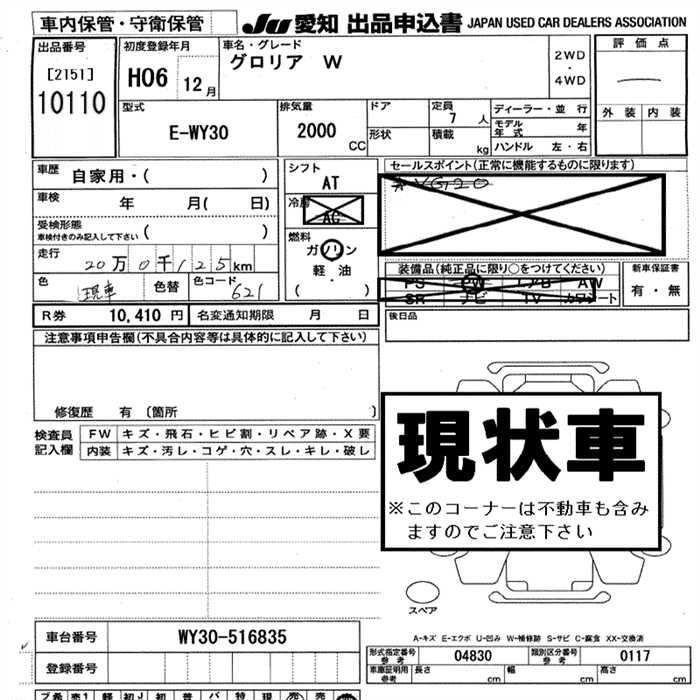 車内保管・守衛保管
JU 愛知 出品申込書 JAPAN USED CAR DEALERS ASSOCIATION
出品番号
[2151]
10110
初度登録年月
H06 12月
車名・グレード
グロリア W
2WD
・
4WD
評価点
外装 内装
型式
E-WY30
排気量
2000
CC
ドア
形状
定員
7 人
積載
kg
ディーラー・並行
モデル年式 年
ハンドル 左・右
車歴 自家用・( )
車検 年 月( 日)
受検形態
車検付きのみ記入して下さい ( )
走行 20万0千125km
色 現車 色替 色コード 621
シフト
AT
冷房
AC
燃料
ガソリン
軽・油
( )
セールスポイント(正常に機能するものに限ります)
VG20
装備品(純正品に限り○をつけてください)
PS PW エアB AW
SR ナビ TV カワシート
新車保証書
有・無
R券 10,410 円 名変通知期限 月 日
後日品
注意事項申告欄(不具合内容等は具体的に記入して下さい)
修復歴 有 〔箇所 〕
検査員
記入欄
FW キズ・飛石・ヒビ割・リペア跡・X要
内装 キズ・汚レ・コゲ・穴・スレ・キレ・破レ
現状車
※このコーナーは不動車も含み
ますのでご注意下さい
スペア
A-キズ E-エクボ U-凹み W-補修跡 S-サビ C-腐食 XX-交換済
車台番号 WY30-516835
登録番号
形式指定番号
参考
04830
類別区分番号
参考
0117
車庫証明用
参考
長さ cm 幅 cm 高さ cm